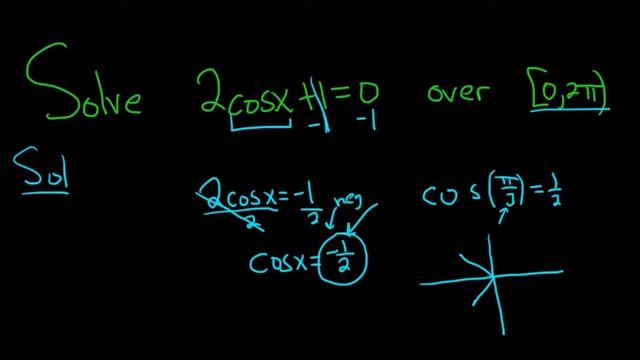 Solve 2cosx +1 = 0 over [0, 2π)
-1 -1
Sol
2cosx = -1 neg
2 2
cosx = -1/2
cos(π/3) = 1/2